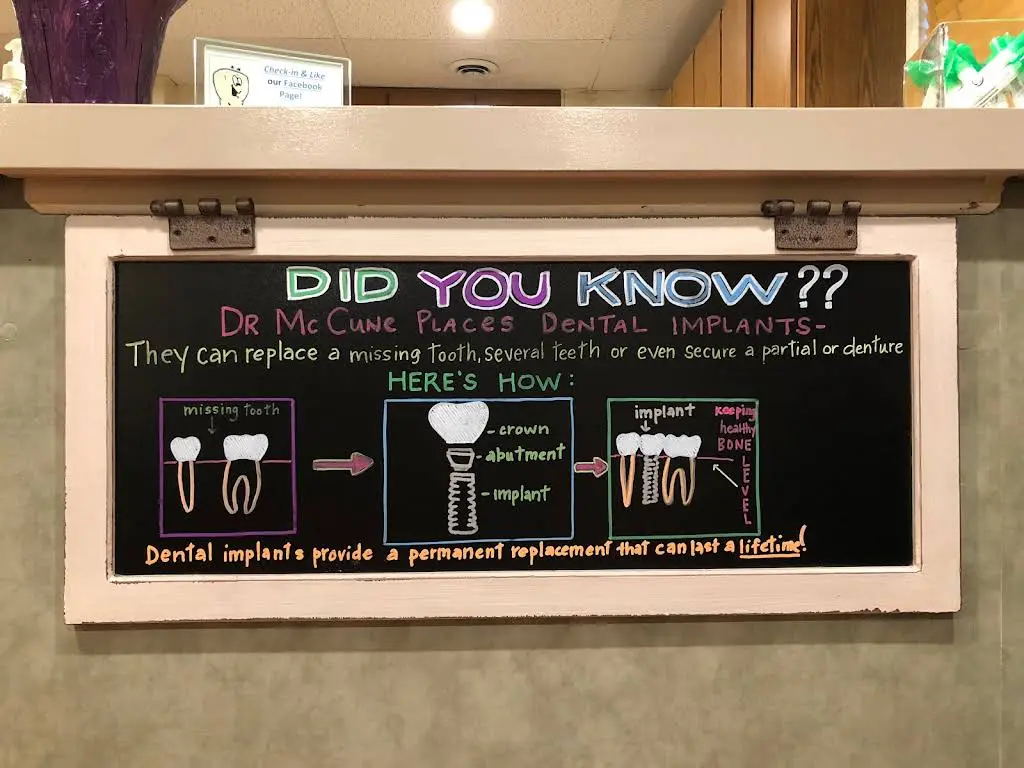 Check-in & Like
our Facebook
Page!
DID YOU KNOW??
DR MCCUNE PLACES DENTAL IMPLANTS-
They can replace a missing tooth, several teeth or even secure a partial or denture
HERE'S HOW:
missing tooth
crown
abutment
implant
implant
Keeping
healthy
BONE
LEVEL
Dental implants provide a permanent replacement that can last a lifetime!